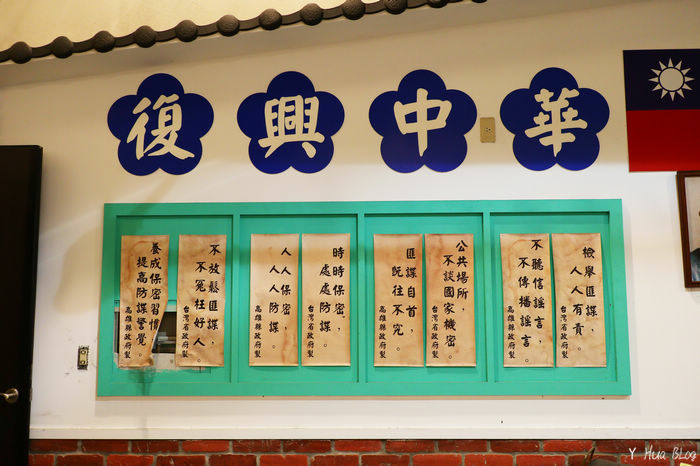 復興中華
檢舉匪諜，
人人有責。
不聽信謠言，
不傳播謠言。
高雄縣政府製
公共場所，
不談國家機密。
台灣省政府製
匪諜自首，
既往不究。
時時保密，
處處防諜。
台灣省政府製
人人保密，
人人防諜。
高雄縣政府製
不放鬆匪諜，
不冤枉好人。
台灣省政府製
養成保密習慣
提高防諜警覺
高雄縣政府製
Y Hua Blog